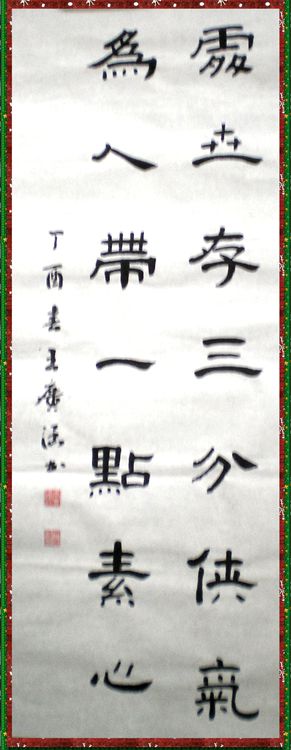 處世存三分俠氣
為人帶一點素心
丁酉春王廣书